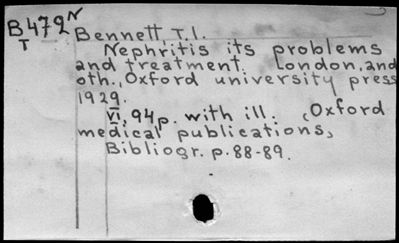 B472N Bennett T.I.
T
Nephritis its problems
and treatment. London, and
oth., Oxford university press
1929.
VI, 94p. with ill. (Oxford
medical publications,
Bibliogr. p.88-89.